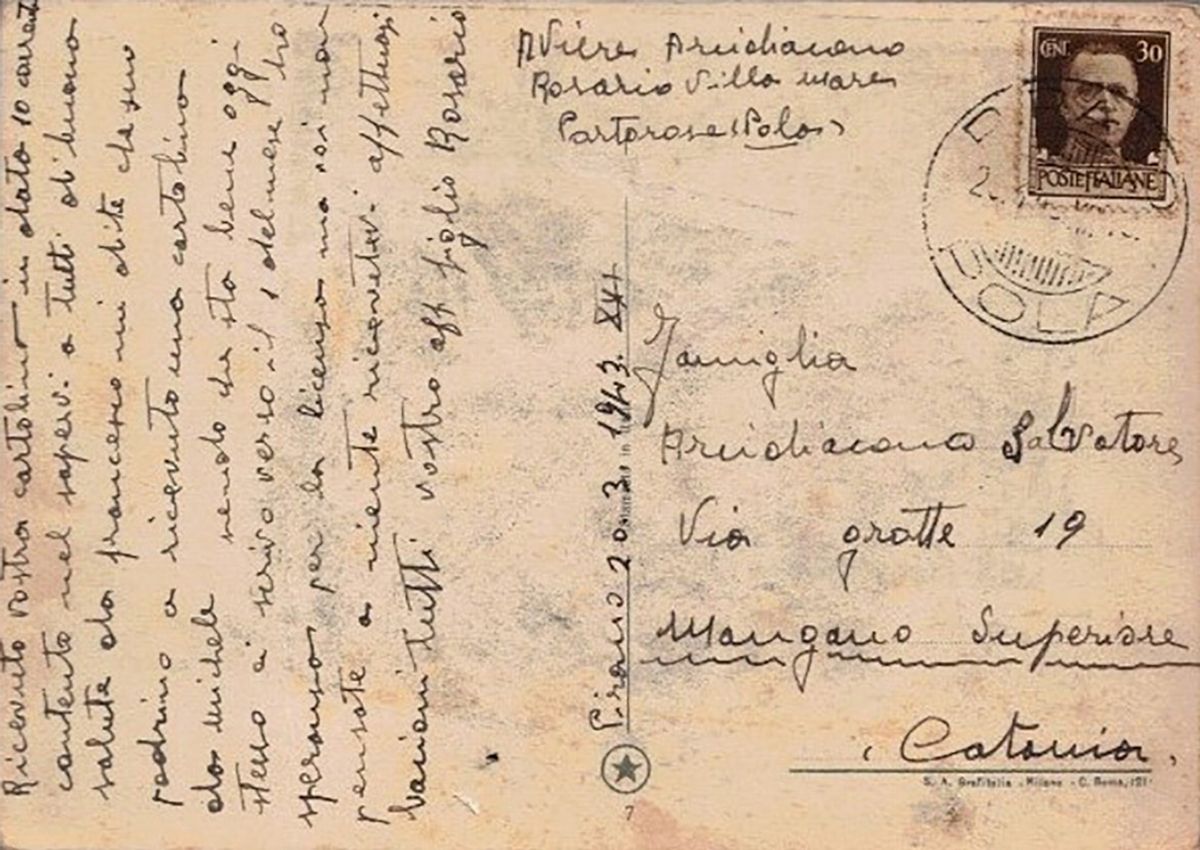 Ricevento vostra cartolina in dato 10 corrente
contento nel sapervi a tutti di buona
salute da francesco mi dite che suo
padrino a ricevuto una cartolina
da michele venendo che sta bene oggi
stesso ci scrivo verso il 1 del mese ho
speranso per la licensa ma voi non
pensate a niente ricevetevi affettuosi
bacioni tutti vostro aff figlio Rosario
AViere Arcidiacono
Rosario Villa Mare
Portorose (Pola)
CENT 30
POSTE ITALIANE
POLA
Pirano 20 3 1943. XXI
Famiglia
Arcidiacono Salvatore
Via grotte 19
Mangano Superiore
(Catania)
S. A. Grafitalia - Milano - C. Roma, 121
7